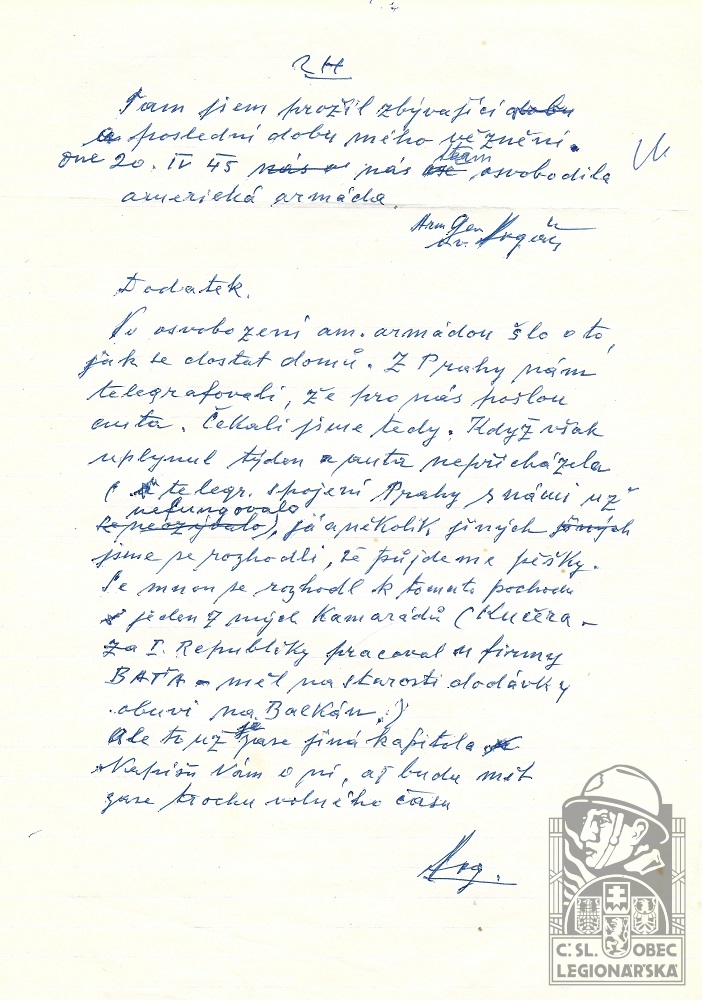 Tam jsem prožil zbývající dobu
a poslední dobu mého věznění.
dne 20. IV 45 nás tam osvobodila
americká armáda.
Arm Gen
Dodatek.
Po osvobození am. armádou šlo o to,
jak se dostat domů. Z Prahy nám
telegrafovali, že pro nás pošlou
auta. Čekali jsme tedy. Když však
uplynul týden a auta nepřicházela
( a telegr. spojení Prahy s námi už
nefungovalo
se neozývalo), já a několik jiných jiných
jsme se rozhodli, že půjdeme pěšky.
Se mnou se rozhodl k tomuto pochodu
i jeden z mých kamarádů (Kučera -
za I. Republiky pracoval u firmy
BAŤA - měl na starosti dodávky
obuvi na Balkán.)
Ale to už je zase jiná kapitola
Napíšu Vám o ní, až budu mít
zase trochu volného času
ČSL. OBEC
LEGIONÁŘSKÁ